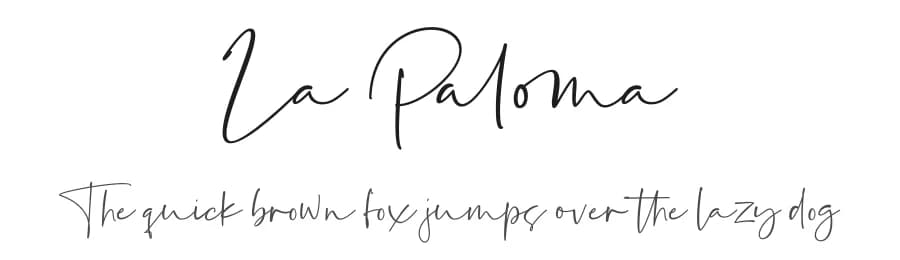 La Paloma
The quick brown fox jumps over the lazy dog